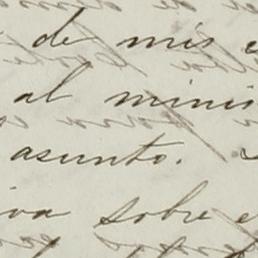 de mis
al minis
asunto.
iva sobre e